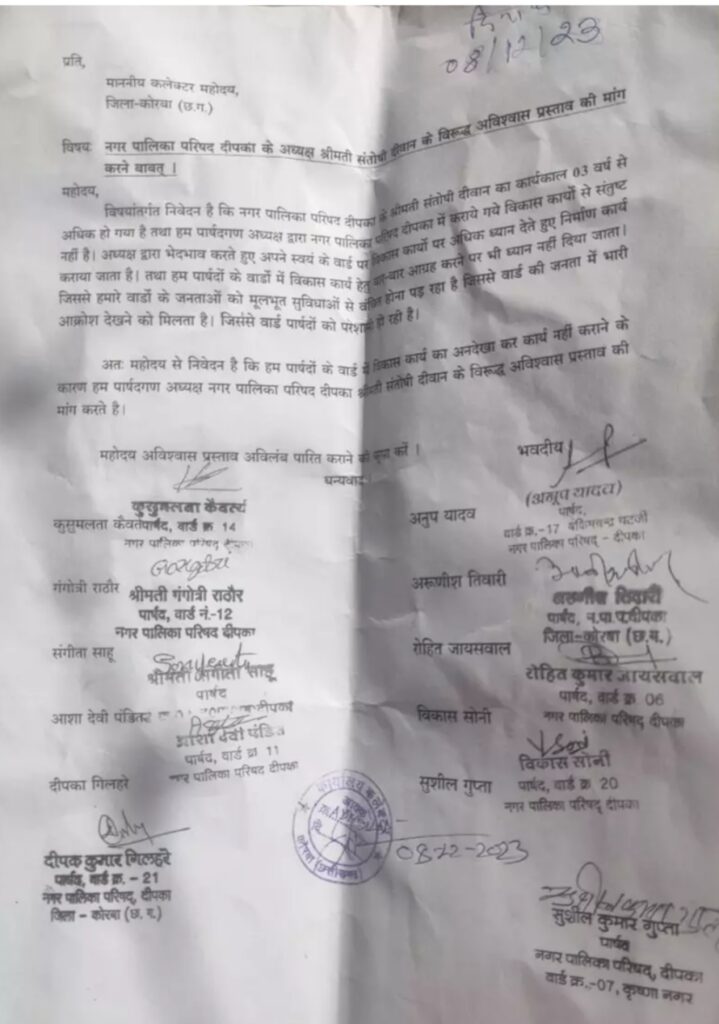 दिनांक
08/12/23
प्रति,
माननीय कलेक्टर महोदय,
जिला-कोरबा (छ.ग.)
विषयः नगर पालिका परिषद दीपका के अध्यक्ष श्रीमती संतोषी दीवान के विरूद्ध अविश्वास प्रस्ताव की मांग
करने बाबत् ।
महोदय,
विषयांतर्गत निवेदन है कि नगर पालिका परिषद दीपका के श्रीमती संतोषी दीवान का कार्यकाल 03 वर्ष से
अधिक हो गया है तथा हम पार्षदगण अध्यक्ष द्वारा नगर पालिका परिषद दीपका में कराये गये विकास कार्यो से संतुष्ट
नहीं है। अध्यक्ष द्वारा भेदभाव करते हुए अपने स्वयं के वार्ड पर विकास कार्यो पर अधिक ध्यान देते हुए निर्माण कार्य
कराया जाता है। तथा हम पार्षदों के वार्डो में विकास कार्य हेतु बार-बार आग्रह करने पर भी ध्यान नहीं दिया जाता।
जिससे हमारे वार्डो के जनताओं को मूलभूत सुविधाओं से वंचित होना पड़ रहा है जिससे वार्ड की जनता में भारी
आक्रोश देखने को मिलता है। जिससे वार्ड पार्षदों को परेशानी हो रही है।
अतः महोदय से निवेदन है कि हम पार्षदों के वार्ड में विकास कार्य का अनदेखा कर कार्य नहीं कराने के
कारण हम पार्षदगण अध्यक्ष नगर पालिका परिषद दीपका श्रीमती संतोषी दीवान के विरूद्ध अविश्वास प्रस्ताव की
मांग करते है।
महोदय अविश्वास प्रस्ताव अविलंब पारित कराने की कृपा करें ।
धन्यवाद।
भवदीय
कुसुमलता कैवर्त्य
कुसुमलता कैवर्त पार्षद, वार्ड क्र 14
नगर पालिका परिषद दीपका
गंगोत्री राठौर
श्रीमती गंगोत्री राठौर
पार्षद, वार्ड नं.-12
नगर पालिका परिषद दीपका
संगीता साहू
श्रीमती संगीता साहू
पार्षद
दीपका
आशा देवी पंडित
आशा देवी पंडित
पार्षद, वार्ड क्र 11
नगर पालिका परिषद दीपका
दीपका गिलहरे
दीपक कुमार गिलहरे
पार्षद, वार्ड क्र. - 21
नगर पालिका परिषद्, दीपका
जिला - कोरबा (छ. ग.)
अनुप यादव
(अनूप यादव)
पार्षद,
वार्ड क्र.-17 बंकिमचन्द्र चटर्जी
नगर पालिका परिषद - दीपका
अरूणीश तिवारी
अरुणीश तिवारी
पार्षद, न.पा.प.दीपका
जिला-कोरबा (छ.ग.)
रोहित जायसवाल
रोहित कुमार जायसवाल
पार्षद, वार्ड क्र 06
नगर पालिका परिषद्, दीपका
विकास सोनी
विकास सोनी
पार्षद, वार्ड क्र 20
नगर पालिका परिषद् दीपका
सुशील गुप्ता
कार्यालय कलेक्टर
कोरबा (छत्तीसगढ़)
08-12-2023
सुशील कुमार गुप्ता
सुशील कुमार गुप्ता
पार्षद
नगर पालिका परिषद्, दीपका
वार्ड क्र.-07, कृष्णा नगर